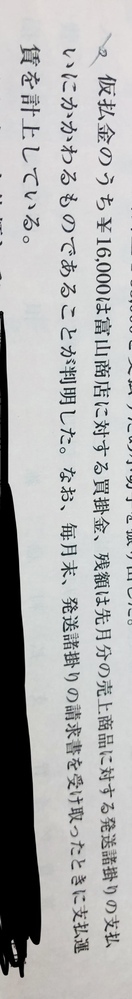 仮払金のうち¥16,000は富山商店に対する買掛金、残額は先月分の売上商品に対する発送諸掛りの支払
いにかかわるものであることが判明した。なお、毎月末、発送諸掛りの請求書を受け取ったときに支払運
賃を計上している。